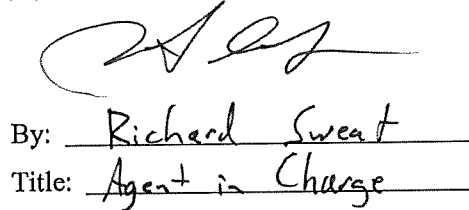 By: Richard Sweat
Title: Agent in Charge